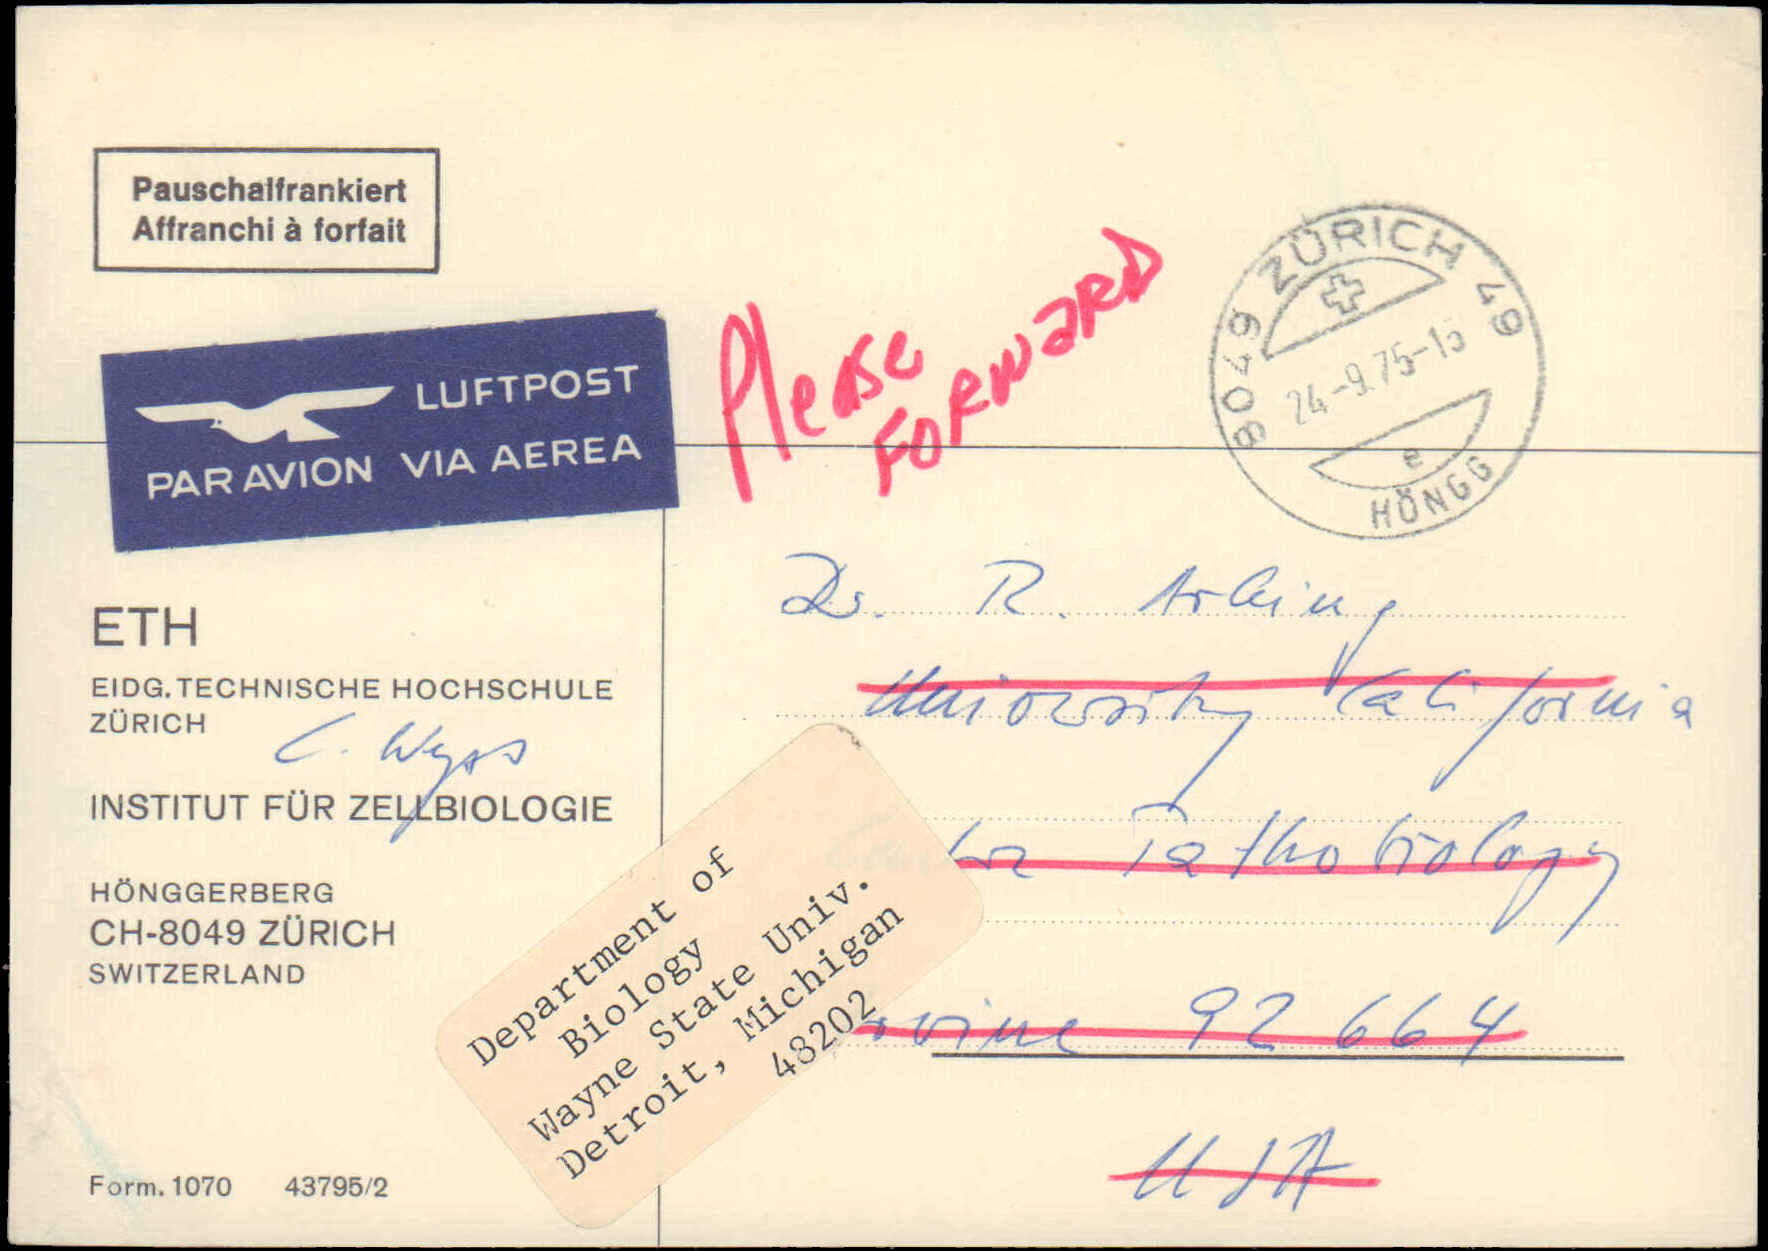 Pauschalfrankiert
Affranchi à forfait
LUFTPOST
PAR AVION VIA AEREA
Please
FORWARD
8049 ZÜRICH 49
24-9.75-15
e
HÖNGG
ETH
EIDG. TECHNISCHE HOCHSCHULE
ZÜRICH
C. Wyss
INSTITUT FÜR ZELLBIOLOGIE
HÖNGGERBERG
CH-8049 ZÜRICH
SWITZERLAND
Form. 1070 43795/2
Dr. R. Arking
University California
Pathobiology
92664
USA
Department of
Biology
Wayne State Univ.
Detroit, Michigan
48202